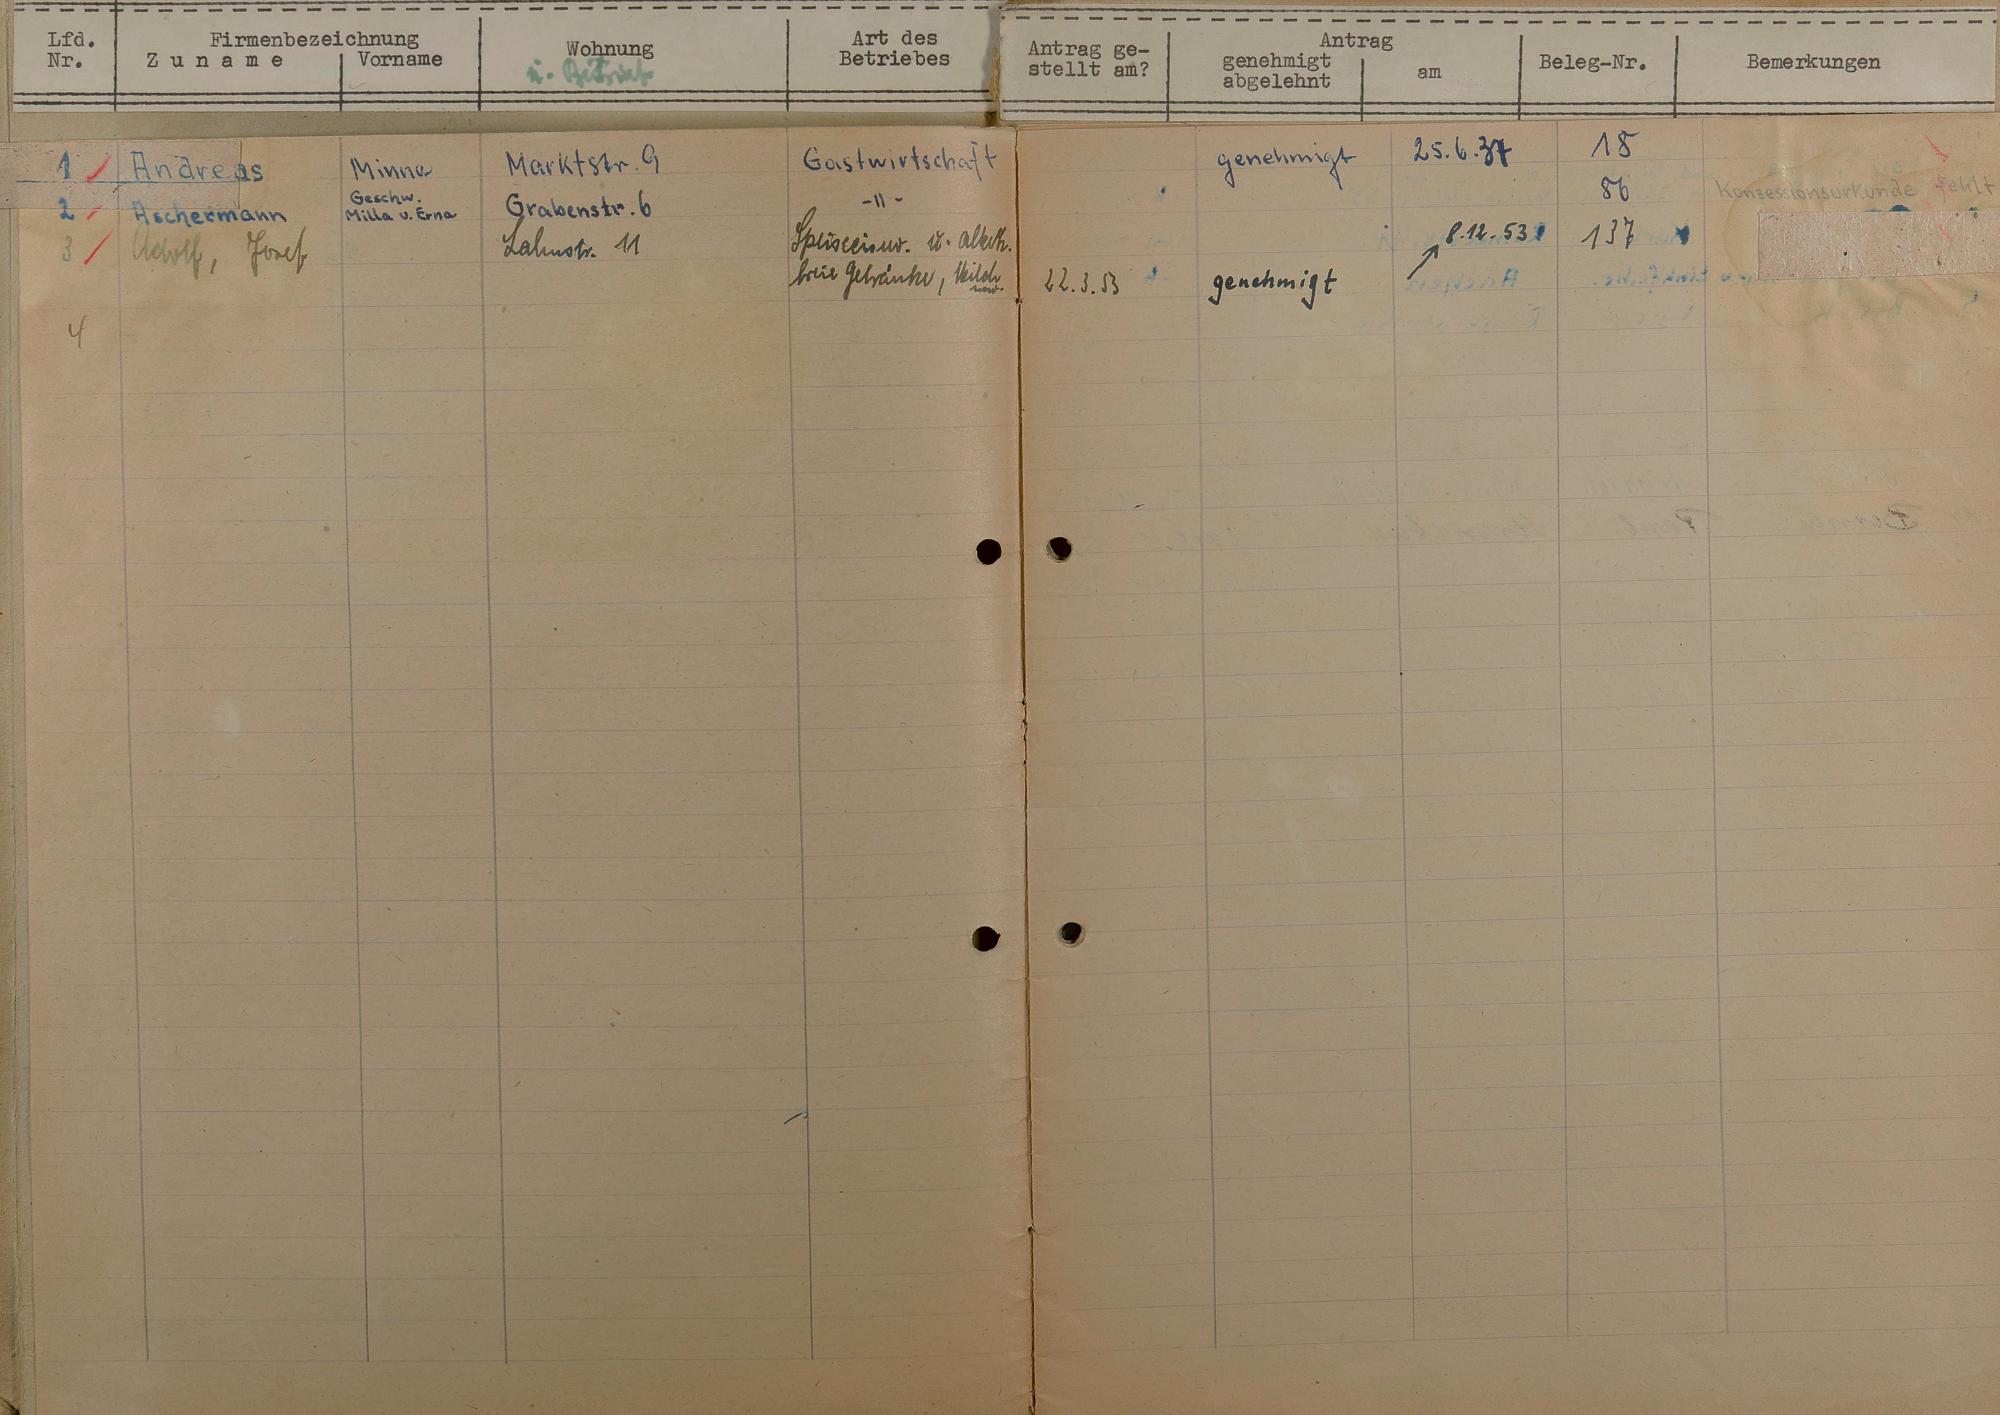 Lfd. Nr. Firmenbezeichnung Zuname Vorname Wohnung u. Betrieb Art des Betriebes Antrag ge-stellt am? Antrag genehmigt abgelehnt am Beleg-Nr. Bemerkungen
1 Andreas Minna Marktstr. 9 Gastwirtschaft genehmigt 25.6.37 18
2 Aschermann Geschw. Milla u. Erna Grabenstr. 6 -"- 86 Konzessionsurkunde fehlt
3 Adolf, Josef Lahnstr. 11 Speiseeisw. u. alkoh. 8.12.53 137
freie Getränke, Milch usw. 22.3.53 genehmigt
4